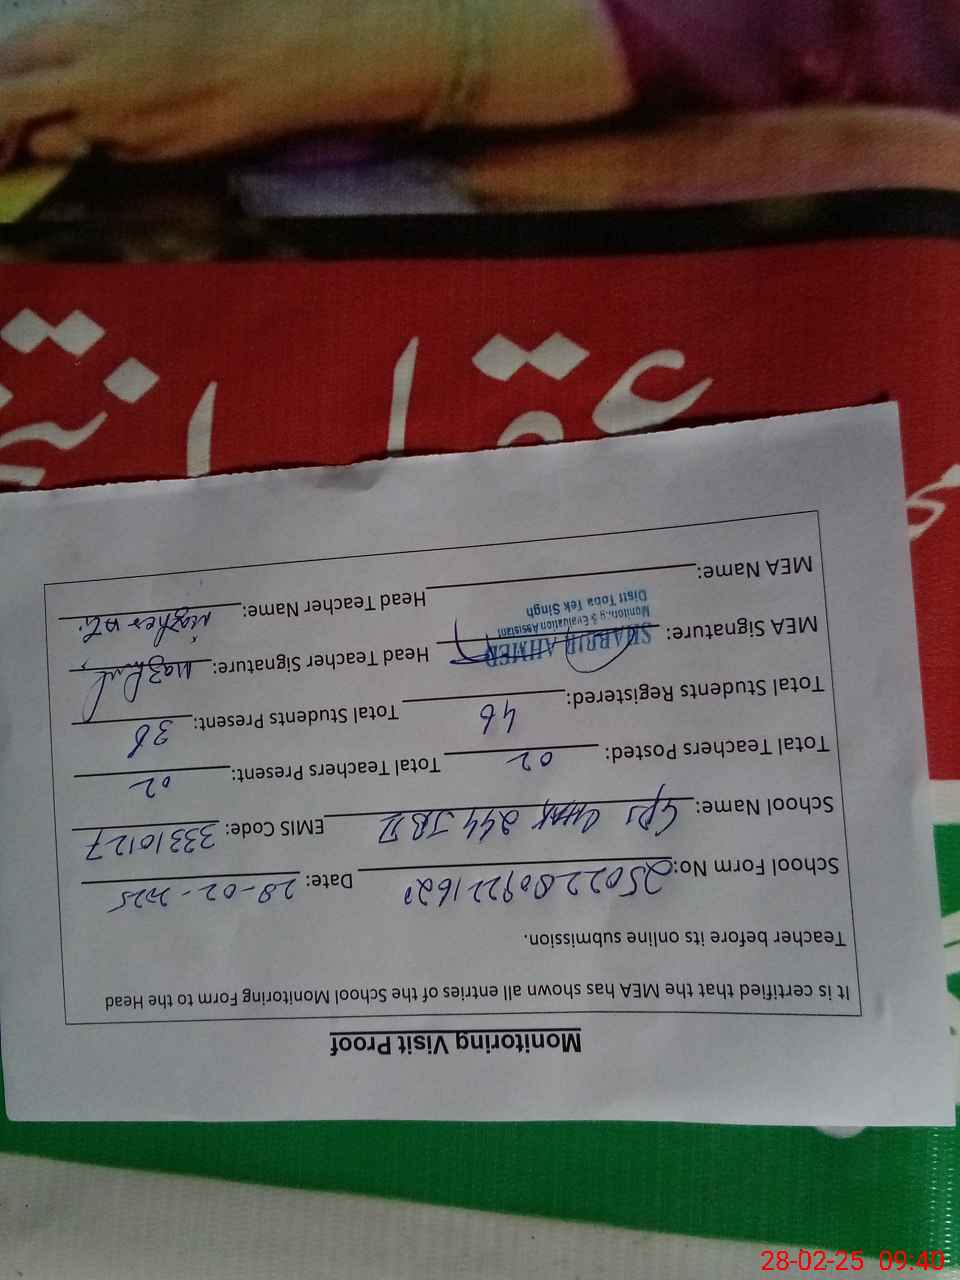 Monitoring Visit Proof
It is certified that the MEA has shown all entries of the School Monitoring Form to the Head
Teacher before its online submission.
School Form No: Date: 28-02-2025
School Name: GPS CHAK 244 JB II EMIS Code: 33310127
Total Teachers Posted: 02 Total Teachers Present: 02
Total Students Registered: 46 Total Students Present: 36
MEA Signature: SHABBIR AHMED Head Teacher Signature:
Monitoring & Evaluation Assistant
Distt Toba Tek Singh
MEA Name: Head Teacher Name:
28-02-25 09:40